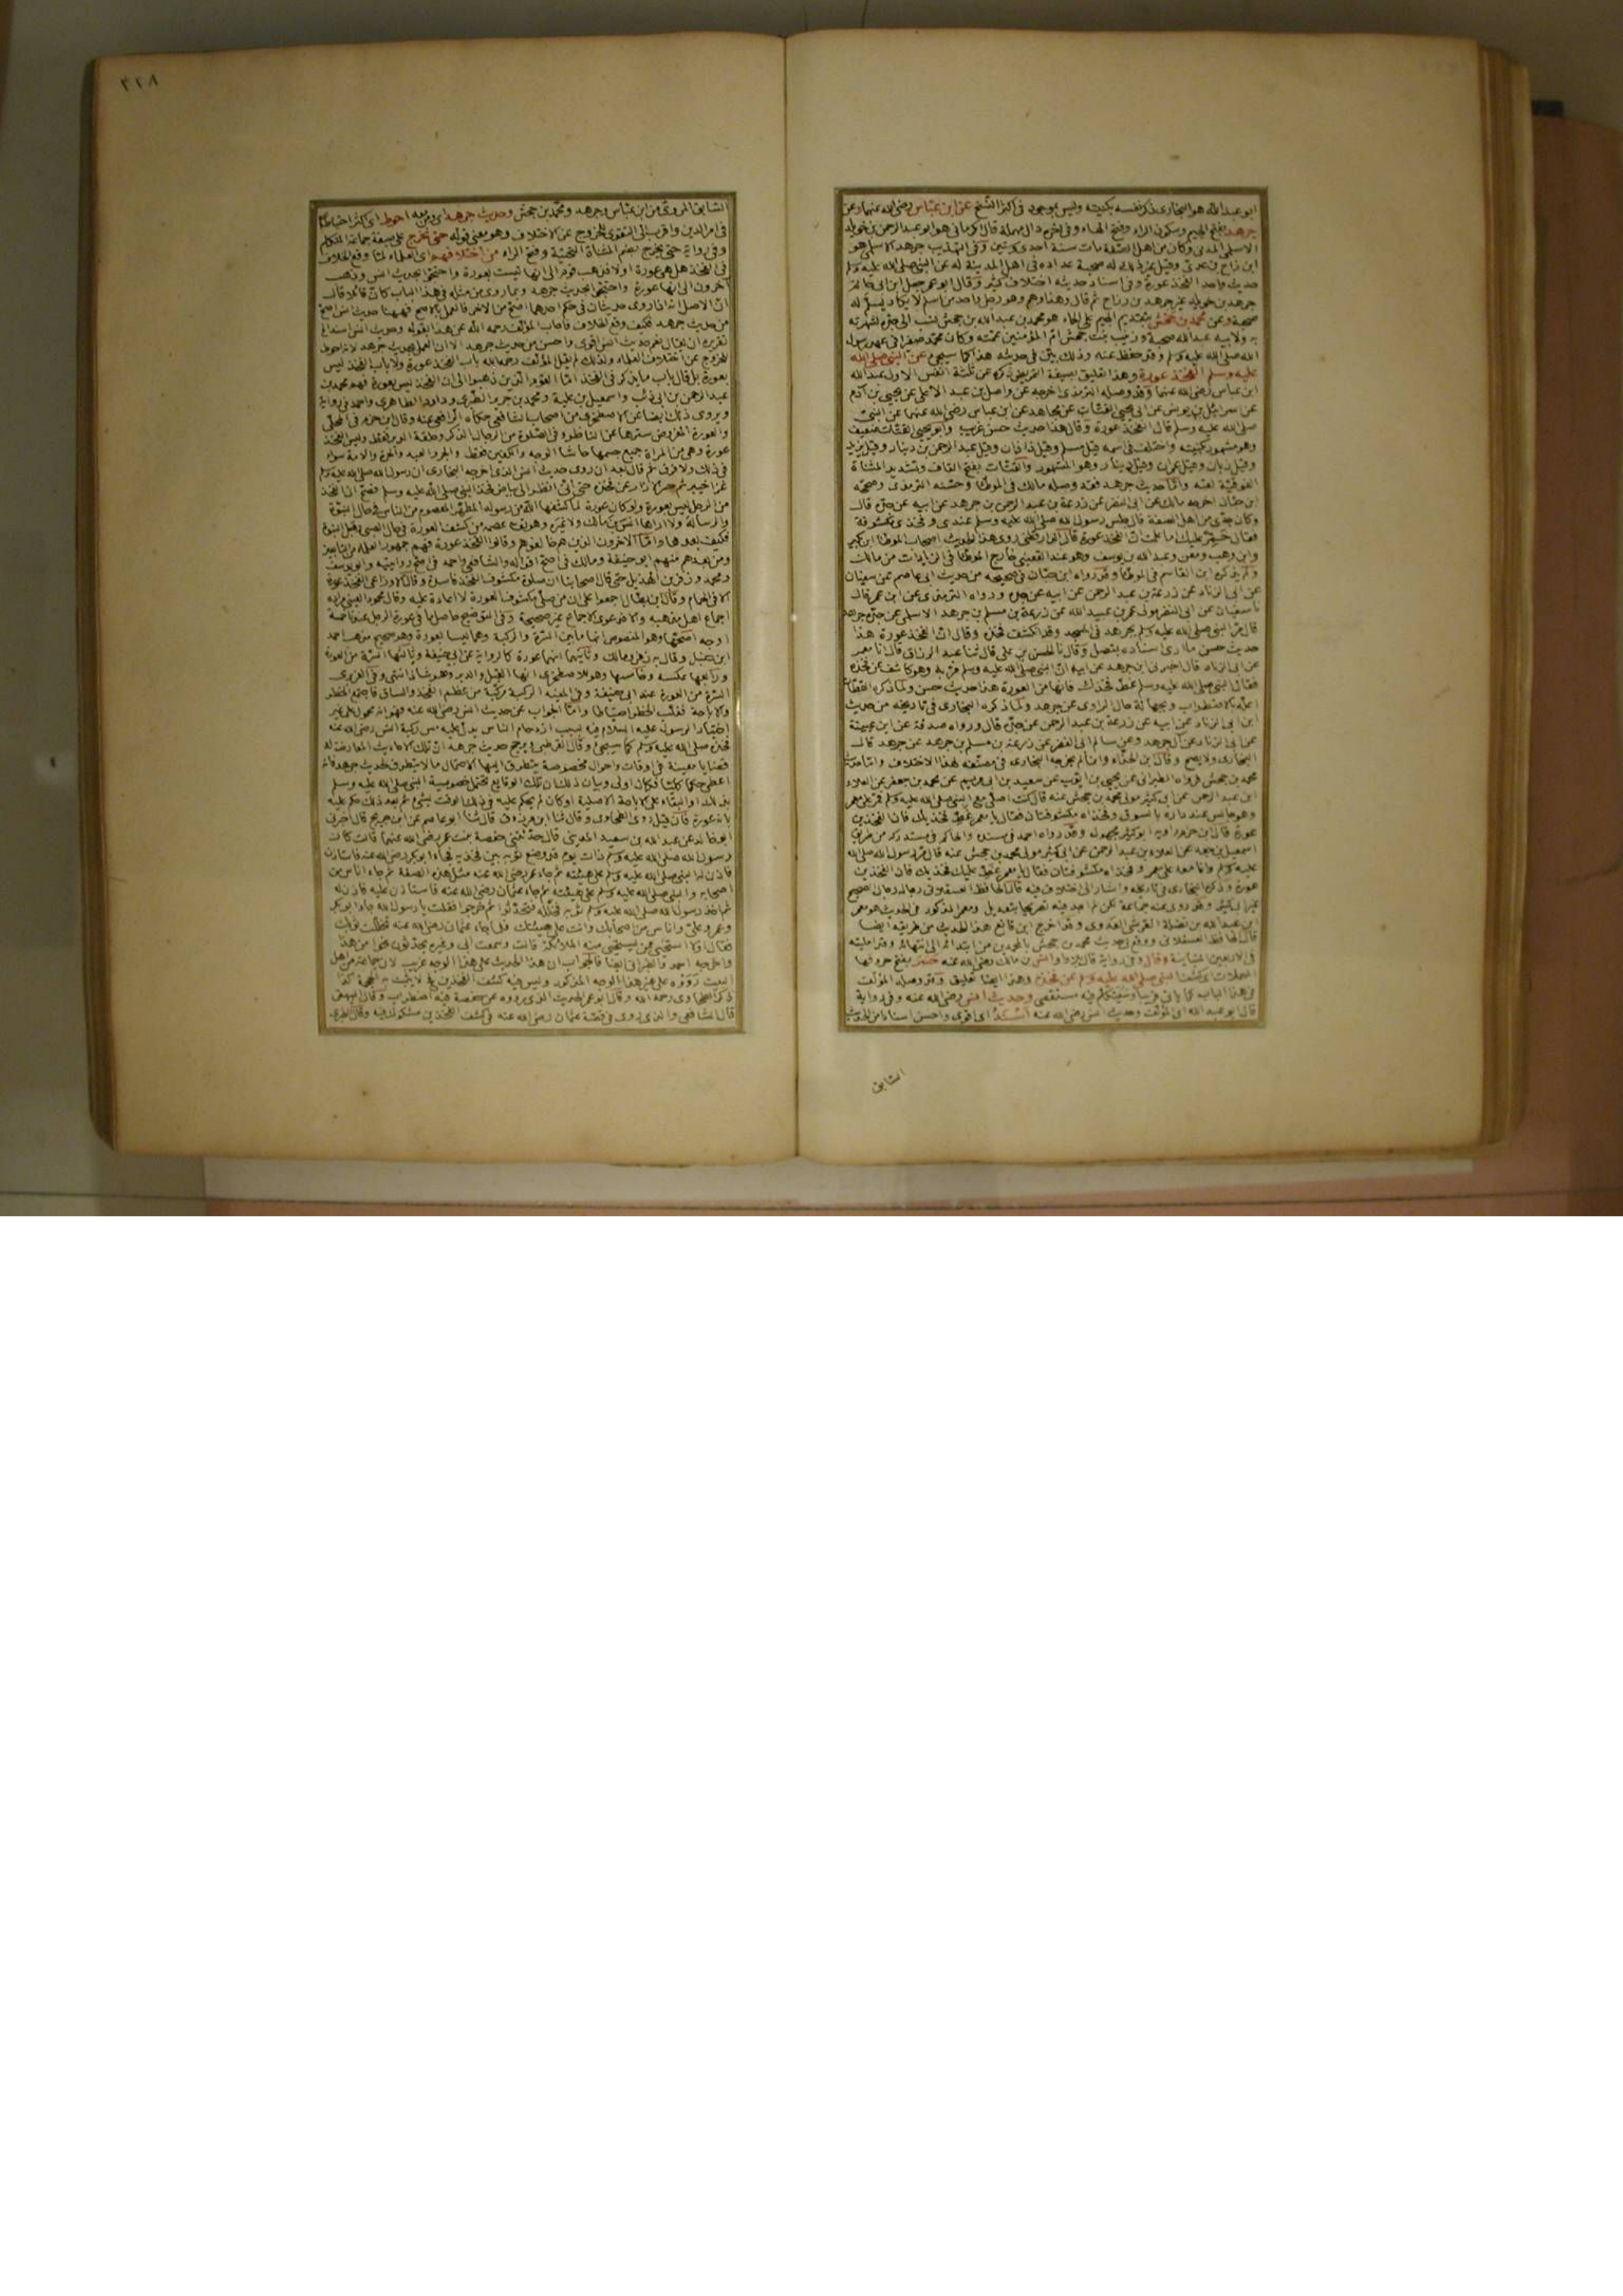 ابو عبد الله هو البخاري ذكر نفسه بكنيته وليس بموجود في اكثر النسخ عن ابن عباس رضي الله عنهما وعن
جرهد بفتح الجيم وسكون الراء وفتح الهاء وفي اخره دال مهملة قال الكرماني هو ابو عبد الرحمن بن خويلد
الاسلمي المدني وكان من اهل الصفة مات سنة احدى وستين وفي التهذيب جرهد الاسلمي هو
ابن رزاح بن عدي وقيل غير ذلك له صحبة عداده في اهل المدينة له عن النبي صلى الله عليه وسلم
حديث واحد الفخذ عورة وفي اسناد حديثه اختلاف كثير وقال ابو عمر جعل ابن ابي حاتم
جرهد بن خويلد غير جرهد بن رزاح ثم قال وهذا وهم وهو رجل واحد من اسلم لا يكاد يسلم له
صحبة وعن محمد بن جحش بتقديم الجيم على الحاء هو محمد بن عبد الله بن جحش نسب الى جده لشهرته
به ولابيه عبد الله صحبة وزينب بنت جحش ام المؤمنين عمته وكان محمد صغيرا في عهد رسول
الله صلى الله عليه وسلم وقد حفظ عنه وذلك بين في حديثه هذا كما سيجيء عن النبي صلى الله
عليه وسلم الفخذ عورة وهذا تعليق بصيغة التمريض ذكره عن ثلثة انفس الاول عبد الله
ابن عباس رضي الله عنهما وقد وصله الترمذي اخرجه عن واصل بن عبد الاعلى عن يحيى بن آدم
عن اسرائيل بن يونس عن ابي يحيى القتات عن مجاهد عن ابن عباس رضي الله عنهما عن النبي
صلى الله عليه وسلم قال الفخذ عورة وقال هذا حديث حسن غريب وابو يحيى القتات ضعيف
وهو مشهور بكنيته واختلف في اسمه قيل مسلم وقيل زاذان وقيل عبد الرحمن بن دينار وقيل يزيد
وقيل زبان وقيل عمران وقيل دينار وهو المشهور والقتات بفتح القاف وتشديد المثناة
الفوقية لقبه واما حديث جرهد فقد وصله مالك في الموطأ وحسنه الترمذي وصححه
ابن حبان اخرجه مالك عن ابي النضر عن زرعة بن عبد الرحمن بن جرهد عن ابيه عن جده قال
وكان جدي من اهل الصفة قال جلس رسول الله صلى الله عليه وسلم عندي وفخذي مكشوفة
فقال خمر عليك اما علمت ان الفخذ عورة قال الدارقطني روى هذا الحديث اصحاب الموطأ ابن بكير
وابن وهب ومعن وعبد الله بن يوسف وهو عند القعنبي خارج الموطأ في الزيادات عن مالك
ولم يذكره ابن القاسم في الموطأ وقد رواه ابن حبان في صحيحه من حديث ابي عاصم عن سفيان
عن ابي الزناد عن زرعة بن عبد الرحمن عن ابيه عن جده ورواه الترمذي عن ابن ابي عمر قال
نا سفيان عن ابي النضر مولى عمر بن عبيد الله عن زرعة بن مسلم بن جرهد الاسلمي عن جده جرهد
قال مر النبي صلى الله عليه وسلم بجرهد في المسجد وقد انكشف فخذه وقال ان الفخذ عورة هذا
حديث حسن ما ارى اسناده بمتصل وقال نا الحسن بن علي قال ثنا عبد الرزاق قال انا معمر
عن ابي الزناد قال اخبرني ابن جرهد عن ابيه ان النبي صلى الله عليه وسلم مر به وهو كاشف عن فخذه
فقال النبي صلى الله عليه وسلم غط فخذك فانها من العورة هذا حديث حسن ولما ذكره القطان
اعله بالاضطراب وبجهالة حال الراوي عن جرهد ولما ذكره البخاري في تاريخه من حديث
ابن ابي الزناد عن ابيه عن زرعة بن عبد الرحمن عن جده قال ورواه صدقة عن ابن عيينة
عن ابي الزناد عن آل جرهد وعن سالم ابي النضر عن زرعة بن مسلم بن جرهد عن جرهد قال
البخاري ولا يصح وقال ابن الحذاء وانما لم يخرجه البخاري في مصنفه لهذا الاختلاف واما حديث
محمد بن جحش فرواه الطبراني عن يحيى بن ايوب عن سعيد بن ابي مريم عن محمد بن جعفر عن العلاء
ابن عبد الرحمن عن ابي كثير مولى محمد بن جحش عنه قال كنت اصلي مع النبي صلى الله عليه وسلم فمر على معمر
وهو جالس عند داره بالسوق وفخذاه مكشوفتان فقال يا معمر غط فخذيك فان الفخذين
عورة قال ابن حزم راويه ابو كثير مجهول وقد رواه احمد في مسنده والحاكم في مستدركه من طريق
اسمعيل بن جعفر عن العلاء بن عبد الرحمن عن ابي كثير مولى محمد بن جحش عنه قال مر رسول الله صلى الله
عليه وسلم وانا معه على معمر وفخذاه مكشوفتان فقال يا معمر غط عليك فخذيك فان الفخذين
عورة وذكره البخاري في تاريخه واشار الى اختلاف فيه قال الحافظ العسقلاني رجاله رجال الصحيح
غير ابي كثير وقد روى عنه جماعة لكن لم اجد فيه تصريحا بتعديل ومعمر المذكور في الحديث هو معمر
ابن عبد الله بن نضلة القرشي العدوي وقد اخرج ابن قانع هذا الحديث من طريقه ايضا
قال الحافظ العسقلاني ووقع لي حديث محمد بن جحش بالمحمدين من ابتدائه الى انتهائه وقد امليته
في الاربعين المتباينة وقال وفي رواية قال بلا واو انس بن مالك رضي الله عنه حسر بفتح حروفها
المهملات اي كشف النبي صلى الله عليه وسلم عن فخذه وهذا ايضا تعليق وقد وصله المؤلف
في هذا الباب كما ياتي قريبا وسيتكلم فيه مستقصى وحديث انس رضي الله عنه وفي رواية
قال ابو عبد الله اي المؤلف وحديث انس رضي الله عنه اسند اي اقوى واحسن اسنادا من الحديث
السابق
٣٢٨
السابق المروي عن ابن عباس وجرهد ومحمد بن جحش وحديث جرهد اي ومن معه احوط اي اكثر احتياطا
في امر الدين واقرب الى التقوى للخروج عن الاختلاف وهو معنى قوله حتى نخرج على صيغة جماعة المتكلم
وفي رواية حتى يخرج بضم المثناة التحتية وفتح الراء من اختلافهم اي العلماء لما وقع الخلاف
في الفخذ هل هي عورة او لا فذهب قوم الى انها ليست بعورة واحتجوا بحديث انس وذهب
آخرون الى انها عورة واحتجوا بحديث جرهد وبما روي من مثله في هذا الباب كان قائلا قال
ان الاصل انه اذا روي حديثان في حكم احدهما اصح من الاخر فالعمل بالاصح فههنا حديث انس اصح
من حديث جرهد فكيف وقع الخلاف فاجاب المؤلف رحمه الله عن هذا بقوله وحديث انس اسند الخ
تقريره ان يقال نعم حديث انس اقوى واحسن من حديث جرهد الا ان العمل بحديث جرهد لانه احوط
للخروج عن اختلاف العلماء ولذلك لم يقل المؤلف رحمه الله باب الفخذ عورة ولا باب الفخذ ليس
بعورة بل قال باب ما يذكر في الفخذ اما القوم الذين ذهبوا الى ان الفخذ ليس بعورة فهم محمد بن
عبد الرحمن بن ابي ذئب واسمعيل بن علية ومحمد بن جرير الطبري وداود الظاهري واحمد في رواية
ويروى ذلك ايضا عن الاصطخري من اصحاب الشافعي حكاه الرافعي عنه وقال ابن حزم في المحلى
والعورة المفروض سترها عن الناظر وفي الصلوة من الرجال الذكر وحلقة الدبر فقط وليس الفخذ
عورة وهي من المرأة جميع جسمها حاشا الوجه والكفين فقط والحر والعبد والحرة والامة سواء
في ذلك ولا فرق ثم قال بعد ان روى حديث انس الذي اخرجه البخاري ان رسول الله صلى الله عليه وسلم
غزا خيبر ثم حسر الازار عن فخذه حتى اني انظر الى بياض فخذ النبي صلى الله عليه وسلم فصح ان الفخذ
من الرجل ليس بعورة ولو كان عورة لما كشفها الله من رسوله المطهر المعصوم من الناس في حال النبوة
والرسالة ولا اراها انس بن مالك ولا غيره وهو تعالى عصمه من كشف العورة في حال الصبى وقبل النبوة
فكيف بعدها واما الآخرون الذين هم خالفوهم وقالوا الفخذ عورة فهم جمهور العلماء من التابعين
ومن بعدهم منهم ابو حنيفة ومالك في اصح اقواله والشافعي واحمد في اصح روايتيه وابو يوسف
ومحمد وزفر بن الهذيل حتى قال اصحابنا ان صلوة مكشوف الفخذ فاسدة وقال الاوزاعي الفخذ عورة
الا في الحمام وقال ابن بطال اجمعوا على ان من صلى مكشوف العورة لا اعادة عليه وقال محمود العيني مراده
اجماع اهل مذهبه والا فدعوى الاجماع غير صحيحة وفي التوضيح حاصل ما في عورة الرجل عندنا خمسة
اوجه اصحها وهو المنصوص انها ما بين السرة والركبة وهما ليسا بعورة وهو صحيح مذهب احمد
ابن حنبل وقال به زفر ومالك وثانيها انهما عورة كالرواية عن ابي حنيفة وثالثها السرة من العورة
ورابعها عكسه وخامسها وهو للاصطخري انها القبل والدبر وهو شاذ انتهى وفي الغزنوي
السرة من العورة عند ابي حنيفة وفي المفيد الركبة مركبة من عظم الفخذ والساق فاجتمع الحظر
والاباحة فغلب الحظر احتياطا واما الجواب عن حديث انس رضي الله عنه فهو انه محمول على غير
اختيار الرسول عليه السلام فيه بسبب ازدحام الناس يدل عليه مس ركبة انس رضي الله عنه
فخذه صلى الله عليه وسلم كما سيجيء وقال القرطبي يرجح حديث جرهد ان تلك الاحاديث المعارضة له
قضايا معينة في اوقات واحوال مخصوصة يتطرق اليها الاحتمال ما لا يتطرق لحديث جرهد فانه
اعطى حكما كليا فكان اولى وبيان ذلك ان تلك الوقايع تحتمل خصوصية النبي صلى الله عليه وسلم
بذلك او البقاء على الاباحة الاصلية او كان لم يحكم عليه في ذلك الوقت بشيء ثم بعد ذلك حكم عليه
بانه عورة فان قيل روى الطحاوي وقال ثنا ابن مرزوق قال ثنا ابو عاصم عن ابن جريج قال اخبرني
ابو خالد عن عبد الله بن سعيد المديني قال حدثتني حفصة بنت عمر رضي الله عنهما قالت كان
رسول الله صلى الله عليه وسلم ذات يوم قد وضع ثوبه بين فخذيه فجاء ابو بكر رضي الله عنه فاستاذن
فاذن له النبي صلى الله عليه وسلم على هيئته ثم جاء عمر رضي الله عنه بمثل هذه الصفة ثم جاء اناس من
اصحابه والنبي صلى الله عليه وسلم على هيئته ثم جاء عثمان رضي الله عنه فاستاذن عليه فاذن له
ثم اخذ رسول الله صلى الله عليه وسلم ثوبه فتجلله فتحدثوا ثم خرجوا فقلت يا رسول الله جاء ابو بكر
وعمر وعلي واناس من اصحابك وانت على هيئتك فلما جاء عثمان رضي الله عنه تجللت بثوبك
فقال اولا استحيي ممن يستحيي منه الملائكة قالت وسمعت ابي وغيره يحدثون نحوا من هذا
واخرجه احمد والطبراني ايضا فالجواب ان هذا الحديث على هذا الوجه غريب لان جماعة من اهل
البيت رووه على غير هذا الوجه المذكور وليس فيه كشف الفخذين فلا يثبت به الحجة كذا
ذكره الطحاوي رحمه الله وقال ابو عمر الحديث الذي رووه عن حفصة فيه اضطراب وقال البيهقي
قال الشافعي والذي روي في قصة عثمان رضي الله عنه في كشف الفخذين مشكوك فيه وقال الطبري